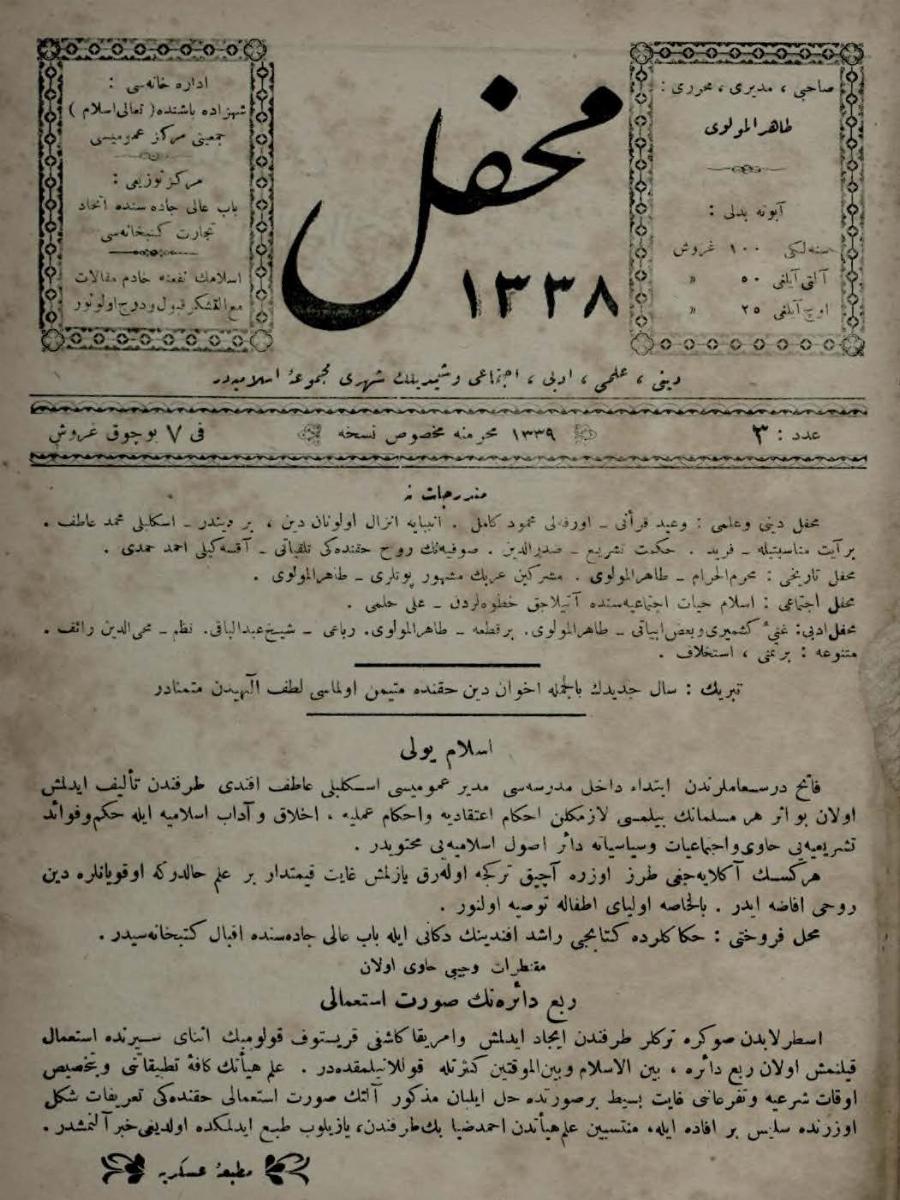 صاحبی ، مدیری ، محرری :
طاهر المولوی
آبونه بدلی :
سنه‌لکی ١٠٠ غروش
آلتی آیلغی ٥٠ »
اوچ آیلغی ٢٥ »
محفل
١٣٣٨
اداره خانه‌سی :
شهزاده باشنده ( تعالی اسلام )
جمعیتی مرکز عمومیسی
مرکز توزیعی :
باب عالی جاده سنده اتحاد
تجارت کتبخانه‌سی
اسلامك نفعنه خادم مقالات
مع‌التشکر قبول ودرج اولونور
دینی ، علمی ، ادبی ، اجتماعی وشیمدیلك شهری مجموعۀ اسلامیه‌در
عدد : ٣
١٣٣٩ محرمنه مخصوص نسخه
فی ٧ بوچوق غروش
مندرجات
محفل دینی وعلمی : وعید قرآنی ـ اورفه‌لی محمود کامل . انبیایه انزال اولونان دین ، بر دیندر ـ اسکلیبلی محمد عاطف .
بر آیت مناسبتیله ـ فرید . حکمت تشریع ـ صدرالدین . صوفیه‌نك روح حقنده‌کی تلقیاتی ـ آقسه‌کیلی احمد حمدی .
محفل تاریخی : محرم‌الحرام ـ طاهرالمولوی . مشرکین عربك مشهور پوتلری ـ طاهرالمولوی .
محفل اجتماعی : اسلام حیات اجتماعیه‌سنده آتیلاجق خطوه‌لردن ـ علی حلمی .
محفل ادبی : غنی ٔ کشمیری وبعض ابیاتی ـ طاهرالمولوی. بر قطعه ـ طاهرالمولوی. رباعی ـ شیخ عبدالباقی. نظم ـ محی‌الدین رائف .
متنوعه : بر تمنی ، استخلاف .
تبریك : سال جدیدك بالجمله اخوان دین حقنده متیمن اولماسی لطف الٓهیدن متمنادر
اسلام یولی
فاتح درسعاملرندن ابتداء داخل مدرسه‌سی مدیر عمومیسی اسکلیبلی عاطف افندی طرفندن تألیف ایدلمش
اولان بو اثر هر مسلمانك بیلمسی لازمکلن احکام اعتقادیه واحکام عملیه ، اخلاق و آداب اسلامیه ایله حکم وفوائد
تشریعیه‌یی حاوی واجتماعیات وسیاسیاته دائر اصول اسلامیه‌یی محتویدر .
هرکسك آکلایه‌جغی طرز اوزره آچیق ترکجه اوله‌رق یازلمش غایت قیمتدار بر علم حالدرکه اوقویانلره دین
روحی افاضه ایدر . بالخاصه اولیای اطفاله توصیه اولنور .
محل فروختی : حکاکلرده کتابجی راشد افندینك دکانی ایله باب عالی جاده‌سنده اقبال کتبخانه‌سیدر .
مقنطرات وجیبی حاوی اولان
ربع دائره‌نك صورت استعمالی
اسطرلابدن صوکره ترکلر طرفندن ایجاد ایدلمش وامریقا کاشفی قریستوف قولومبك اثنای سیرنده استعمال
قیلنمش اولان ربع دائره ، بین الاسلام وبین‌الموقتین کثرتله قوللانیلمقده‌در . علم هیأتك کافۀ تطبیقاتی وبتخصیص
اوقات شرعیه وتفرعاتنی غایت بسیط بر صورتده حل ایلیان مذکور آلتك صورت استعمالی حقنده‌کی تعریفات شکل
اوزرنده سلیس بر افاده ایله، منتسبین علم هیأتدن احمد ضیا بك طرفندن، یازیلوب طبع ایدلمکده اولدیغی خبر آلنمشدر .
مطبعۀ عسکریه